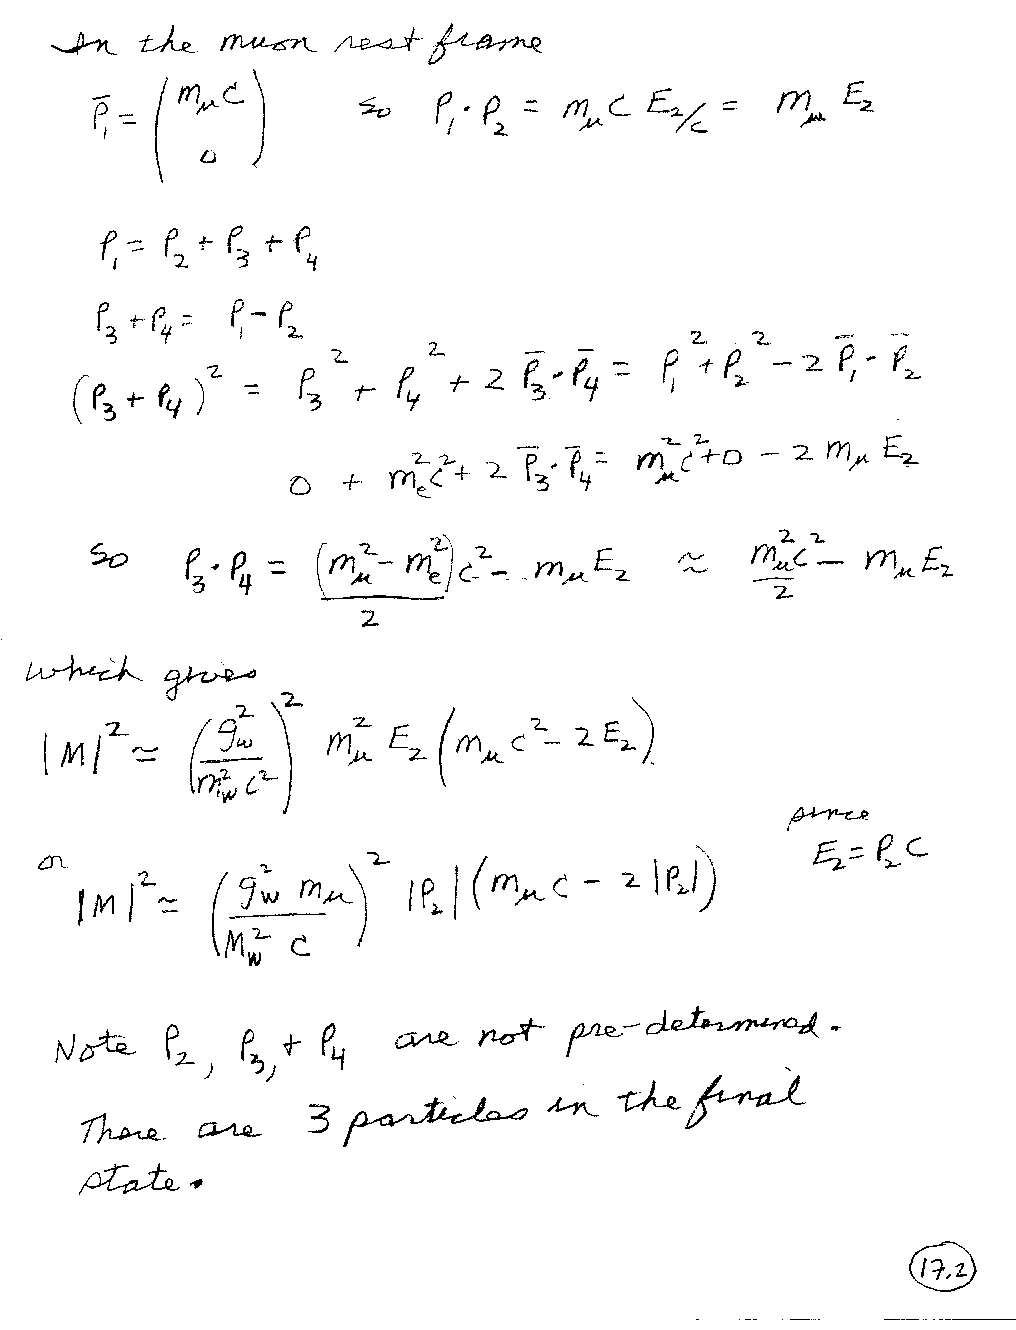 In the muon rest frame
P̄₁ = (m_μ c / 0) so P₁·P₂ = m_μ c E₂/c = m_μ E₂
P₁ = P₂ + P₃ + P₄
P₃ + P₄ = P₁ - P₂
(P₃ + P₄)² = P₃² + P₄² + 2 P̄₃·P̄₄ = P₁² + P₂² - 2 P̄₁·P̄₂
0 + m_e²c² + 2 P̄₃·P̄₄ = m_μ²c² + 0 - 2 m_μ E₂
so P₃·P₄ = (m_μ² - m_e²)c²/2 - m_μ E₂ ≈ m_μ²c²/2 - m_μ E₂
which gives
|M|² ≃ (g_w²/m_w²c²)² m_μ² E₂ (m_μ c² - 2E₂)
since
or |M|² ≃ (g_w² m_μ/M_w² c)² |P₂| (m_μ c - 2|P₂|) E₂ = P₂ c
Note P₂, P₃, + P₄ are not pre-determined.
There are 3 particles in the final
state.
17.2